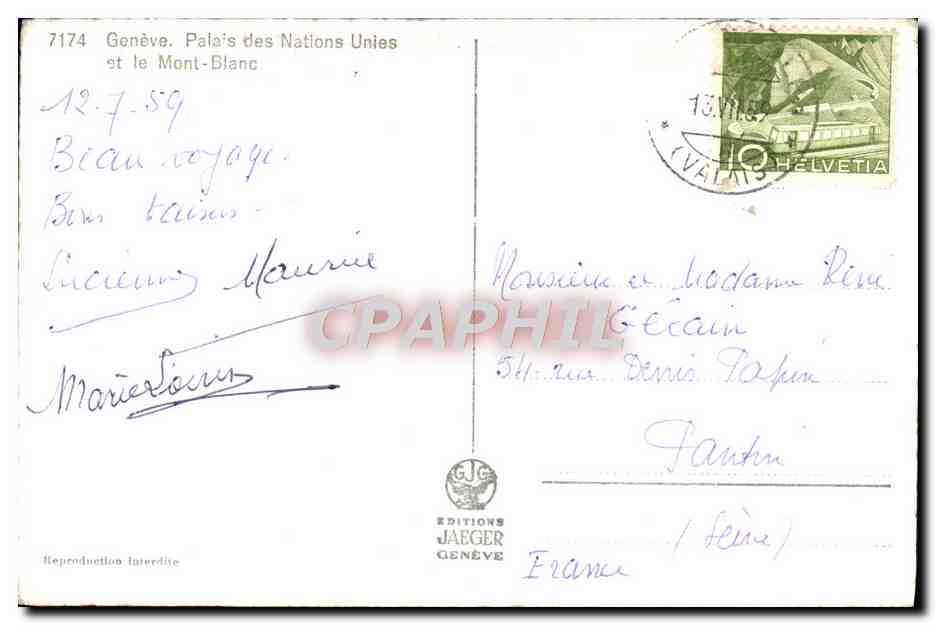 7174 Genève. Palais des Nations Unies
et le Mont-Blanc
12.7.59
Beau voyage.
Bons baisers.
Lucienne Maurice
Marie Louise
13.VII.59
(VALAIS)
10 HELVETIA
Monsieur et Madame René
54 rue Denis Papin
Pantin
(Seine)
France
CPAPHIL
GJG
EDITIONS
JAEGER
GENÈVE
Reproduction interdite